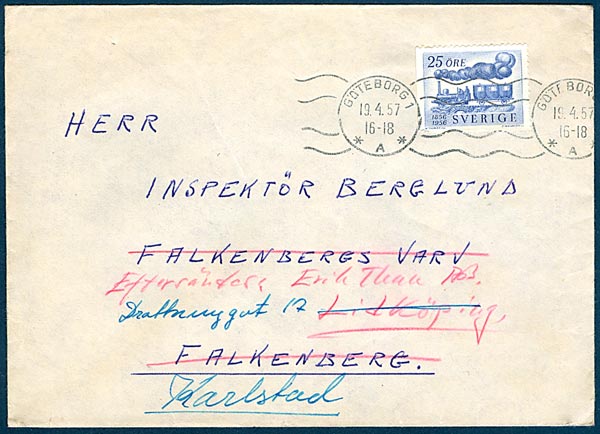 25 ÖRE
1856
1956
SVERIGE
GÖTEBORG 1
19.4.57
16-18
* A *
GÖTEBORG
19.4.57
16-18
* A
HERR
INSPEKTÖR BERGLUND
FALKENBERGS VARV
Eftersändes Erik Thun
17 Lidköping,
FALKENBERG.
Karlstad